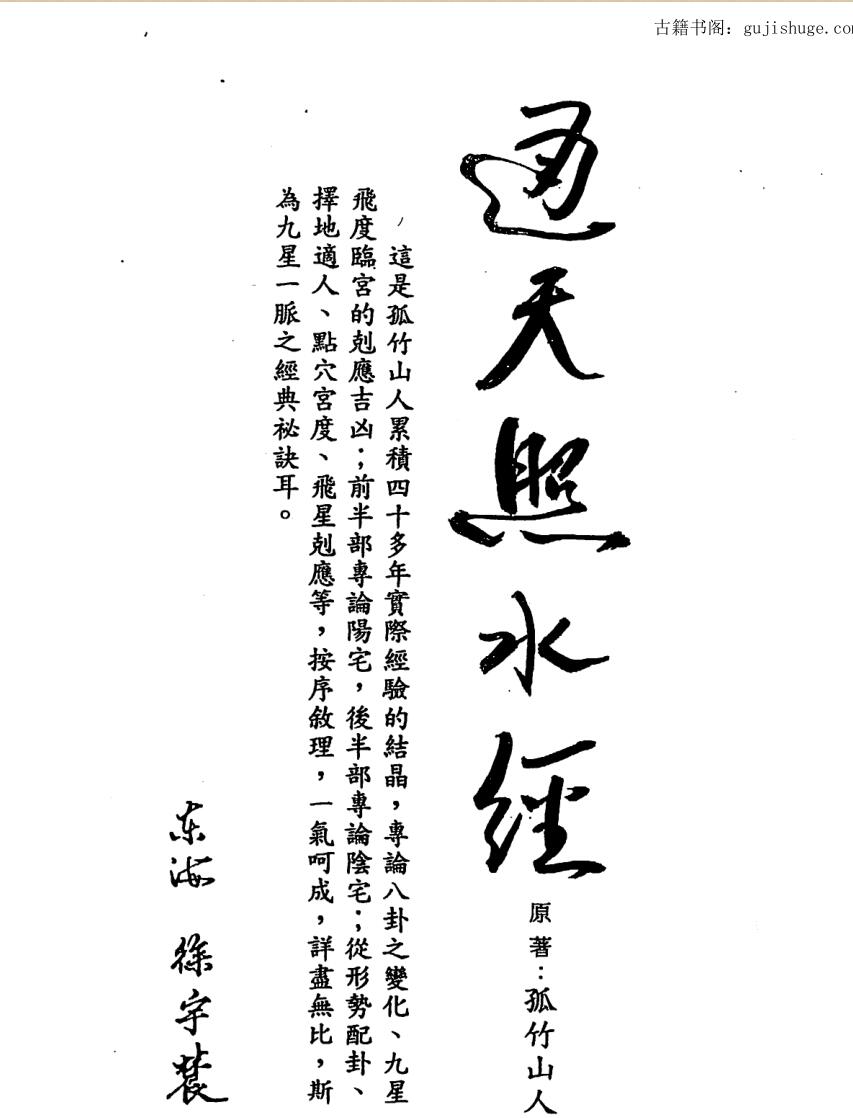 古籍书阁：gujishuge.co
通天照水經
原著：孤竹山人
這是孤竹山人累積四十多年實際經驗的結晶，專論八卦之變化、九星
飛度臨宮的剋應吉凶；前半部專論陽宅，後半部專論陰宅；從形勢配卦、
擇地適人、點穴宮度、飛星剋應等，按序敘理，一氣呵成，詳盡無比，斯
為九星一脈之經典祕訣耳。
东海 徐宇